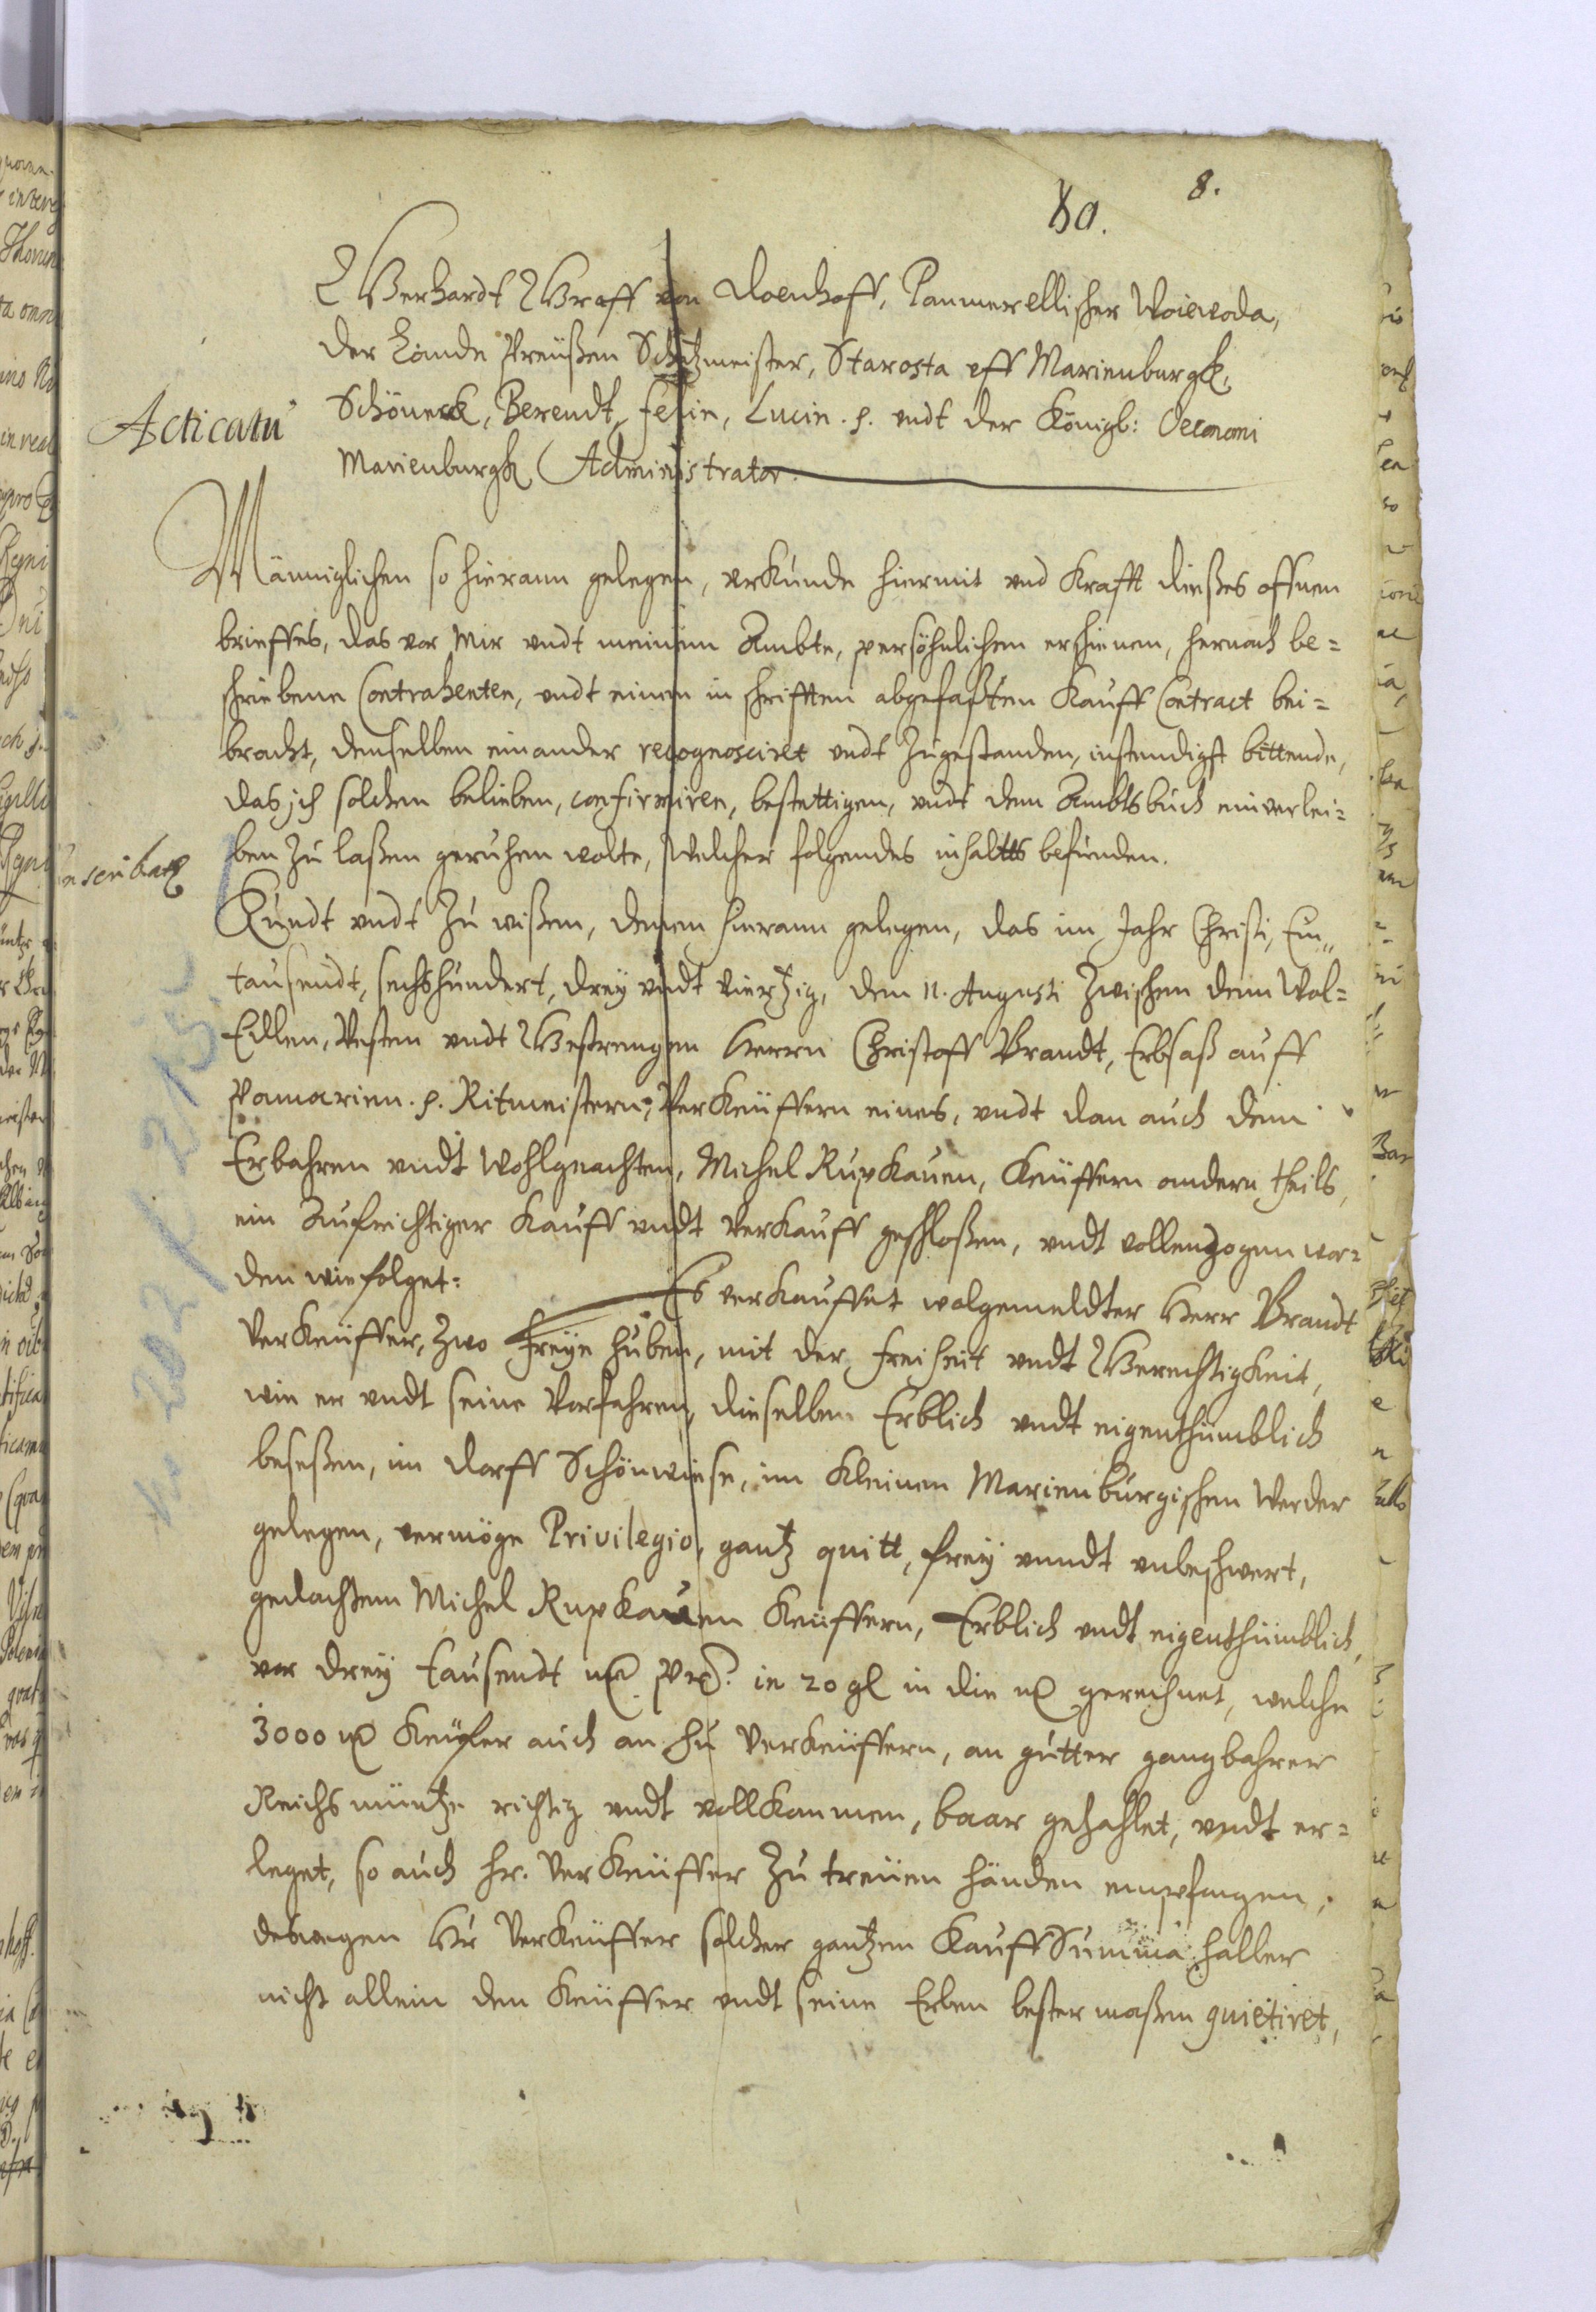 8.
80.
Gerhardt Graff von Doenhoff, Pommerellischer Woiewoda,
der Lande Preüßen Schatzmeister, Starosta vff Marienburgk,
Acticatu
Schöneck, Berendt, Felin, Lucin. p. vndt der Königl: Oeconomi
Marienburgk Administrator.
Männiglichen so hieran gelegen, vrkunde hiermit vnd Krafft dießes offnen
brieffes, das vor Mir vndt meinem Ambte, persöhnlichen erschienen, hernach be=
schriebene Contrahenten, vndt einen in schrifften abgefaßten Kauff Contract bei=
bracht, denselben einander recognosciret vndt zugestanden, instendigst bittende,
das ich solchen belieben, confirmiren, bestettigen, vndt dem Ambtsbuch einverlei=
ben zu laßen geruhen wolte, Welcher folgendes inhaltts befunden.
Kundt vndt zu wißen, denen hieran gelegen, das im Jahr Christi, Ein„
tausendt, sechshundert, drey vndt viertzig, den 11. Augusti zwischen dem Wol=
Edlen, Vesten vndt Gestrengen Herrn Christoff Brandt, Erbsaß auff
Pomarien. p. Ritmeistern, Verkeüffern eines, vndt dan auch dem
Erbahren vndt Wohlgeachten, Michel Rupkauen, Keüffern andern theils,
ein Aufrichtiger Kauff vndt Verkauff geschloßen, vndt vollenzogen wor=
den wie folget: Es verkauffet wolgemeldter Herr Brandt
Verkeüffer, zwo freye huben, mit der freiheit vndt Gerechtigkeit,
wie er vndt seine Vorfahren, dieselben Erblich vndt eigenthümblich
beseßen, im dorff Schönwiese, im Kleinen Marienburgischen Werder
gelegen, vermöge Privilegio, gantz quitt, frey vnndt vnbeschwert,
gedachtem Michel Rupkauen Keüffern, Erblich vndt eigenthümblich,
vor drey tausendt mr. Pr. in 20 gl in die mr gerechnet, welche
3000 mr Keüfer auch an hn Verkeüffern, an gutter gangbahrer
Reichsmüntze richtig vndt vollkommen, baar gezahlet, vndt er=
leget, so auch hr. Verkeüffer zu treüen händen empfangen,
deswegen Hr Verkeüffer solcher gantzen Kauff Summa halber
nicht allein den Keüffer vndt seine Erben bester maßen quietiret,